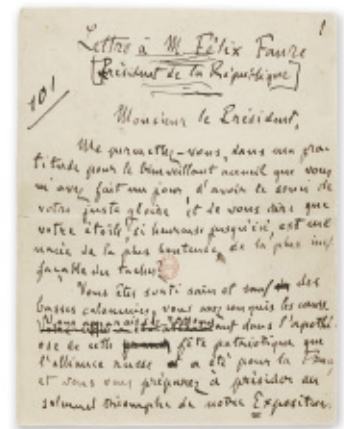 1
Lettre à M. Félix Faure
[Président de la République]
101
Monsieur le Président,
Me permettez-vous, dans ma gra-
titude pour le bienveillant accueil que vous
m'avez fait un jour, d'avoir le souci de
votre juste gloire et de vous dire que
votre étoile, si heureuse jusqu'ici, est me
nacée de la plus honteuse, de la plus inef
façable des taches?
Vous êtes sorti sain et sauf des
basses calomnies, vous avez conquis les cœurs.
Vous apparaissez rayonnant dans l'apothé-
ose de cette fête patriotique que
l'alliance russe a été pour la
et vous vous préparez à présider au
solennel triomphe de notre Exposition